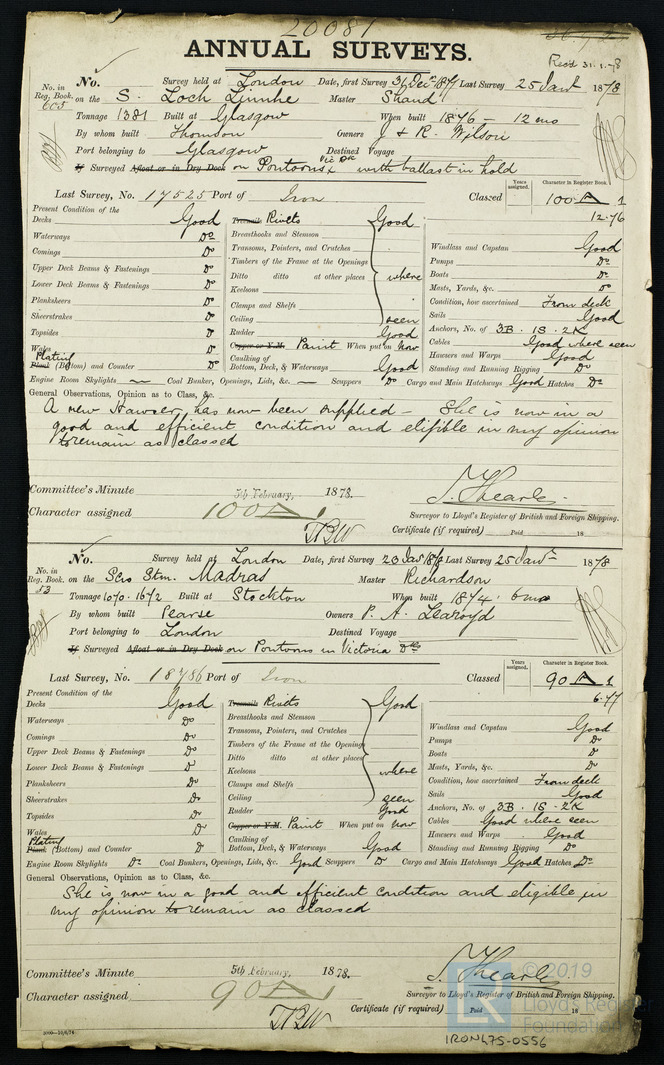 20081
ANNUAL SURVEYS.
Rec'd 31.1.78
No. in Reg. Book. No. Survey held at London Date, first Survey 31 Dec 1877 Last Survey 25 Jan 1878
605 on the S. Loch Linnhe Master Shand
Tonnage 1381 Built at Glasgow When built 1876 - 12 mo
By whom built Thomson Owners J & R. Wilson
Port belonging to Glasgow Destined Voyage
If Surveyed Afloat or in Dry Dock on Pontoons Vic Dk with ballast in hold
Last Survey, No. 17525 Port of Iron Classed Years assigned. Character in Register Book. 100 A 1
12.76
Present Condition of the
Decks Good Treenails Rivets Good
Waterways Do Breasthooks and Stemson
Comings Do Transoms, Pointers, and Crutches Windlass and Capstan Good
Upper Deck Beams & Fastenings Do Timbers of the Frame at the Openings Pumps Do
Lower Deck Beams & Fastenings Do Ditto ditto at other places where Boats Do
Planksheers Do Keelsons Masts, Yards, &c. Do
Sheerstrakes Do Clamps and Shelfs Condition, how ascertained From deck
Topsides Do Ceiling seen Sails Good
Wales Rudder Good Anchors, No. of 3B. 1S. 2K
Plating Copper or Y.M. Paint When put on now Cables Good where seen
Plank (Bottom) and Counter Do Caulking of Bottom, Deck, & Waterways Good Hawsers and Warps Good
Standing and Running Rigging Do
Engine Room Skylights — Coal Bunker, Openings, Lids, &c. — Scuppers Do Cargo and Main Hatchways Good Hatches Do
General Observations, Opinion as to Class, &c.
A new Hawser, has now been supplied - She is now in a
good and efficient condition and eligible in my opinion
to remain as classed
Committee's Minute 5th February, 1878.
Character assigned 100 A 1
J. Thearle.
Surveyor to Lloyd's Register of British and Foreign Shipping.
Certificate (if required) Paid 18
No. in Reg. Book. No. Survey held at London Date, first Survey 23 Jan 1878 Last Survey 25 Jan 1878
53 on the Scw Stm. Madras Master Richardson
Tonnage 1070. 1672 Built at Stockton When built 1874. 6 mo
By whom built Pearse Owners P. A. Learoyd
Port belonging to London Destined Voyage
If Surveyed Afloat or in Dry Dock on Pontoons in Victoria Dks
Last Survey, No. 18786 Port of Iron Classed Years assigned. Character in Register Book. 90 A 1
6.77
Present Condition of the
Decks Good Treenails Rivets Good
Waterways Do Breasthooks and Stemson
Comings Do Transoms, Pointers, and Crutches Windlass and Capstan Good
Upper Deck Beams & Fastenings Do Timbers of the Frame at the Openings Pumps Do
Lower Deck Beams & Fastenings Do Ditto ditto at other places where Boats Do
Planksheers Do Keelsons Masts, Yards, &c. Do
Sheerstrakes Do Clamps and Shelfs Condition, how ascertained From deck
Topsides Do Ceiling seen Sails Good
Wales Rudder Good Anchors, No. of 3B. 1S. 2K
Plating Copper or Y.M. Paint When put on now Cables Good where seen
Plank (Bottom) and Counter Do Caulking of Bottom, Deck, & Waterways Good Hawsers and Warps Good
Standing and Running Rigging Do
Engine Room Skylights Do Coal Bunkers, Openings, Lids, &c. Good Scuppers Do Cargo and Main Hatchways Good Hatches Do
General Observations, Opinion as to Class, &c.
She is now in a good and efficient condition and eligible in
my opinion to remain as classed
Committee's Minute 5th February, 1878.
Character assigned 90 A 1
J. Thearle
Surveyor to Lloyd's Register of British and Foreign Shipping.
Certificate (if required) Paid 18
© 2019
Lloyd's Register
Foundation
IRON475-0556